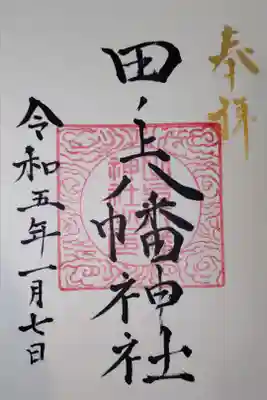 奉拝
田上八幡神社
令和五年一月七日